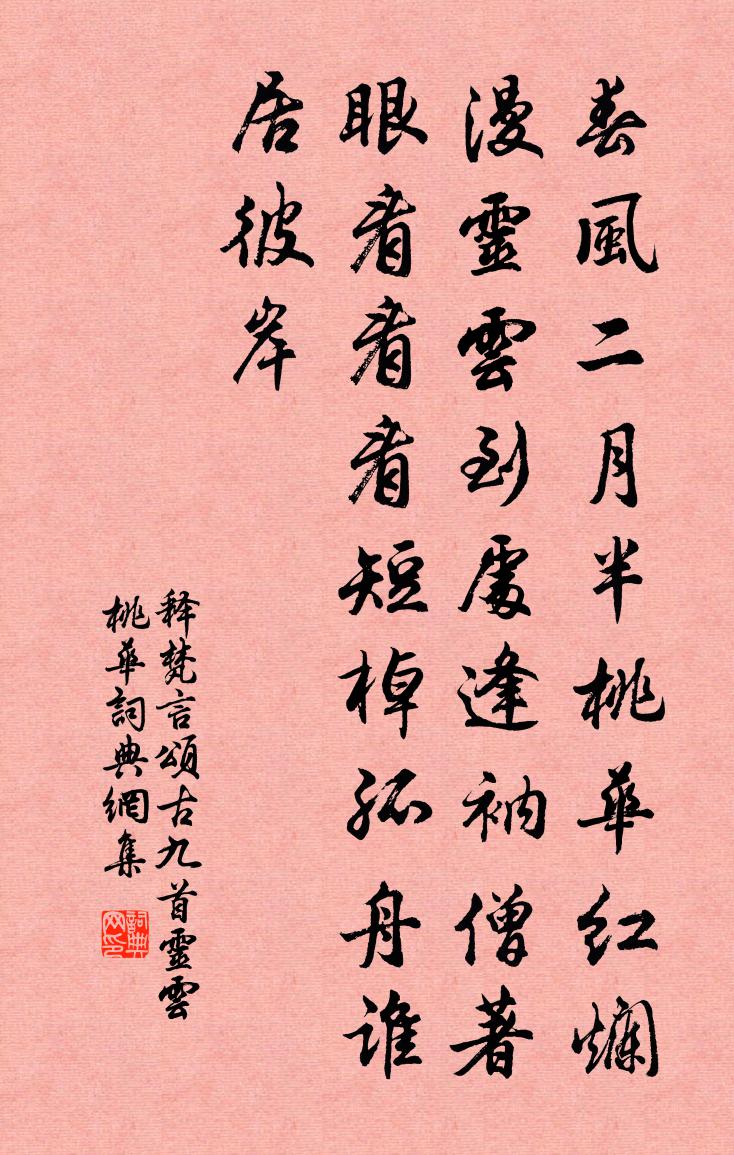 春風二月半桃華紅爛
漫靈雲到處逢衲僧著
眼看看看短棹孤舟誰
居彼岸
释梵言頌古九首靈雲
桃華詞典網集
詞典网印